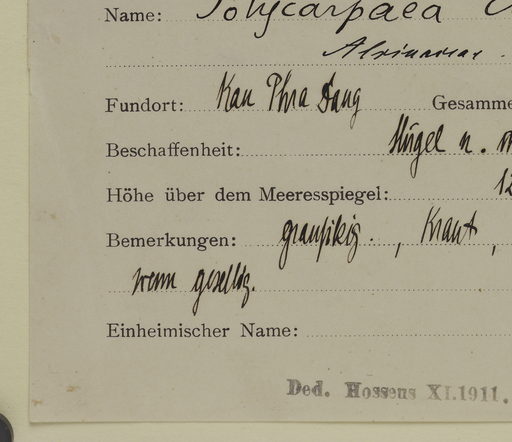 Name: Polycarpaea
Alsinaceae.
Fundort: Kau Phra Dang Gesamme
Beschaffenheit: Hügel u.
Höhe über dem Meeresspiegel: 12
Bemerkungen: , Kraut,
wenn gesellig.
Einheimischer Name:
Ded. Hosseus XI.1911.